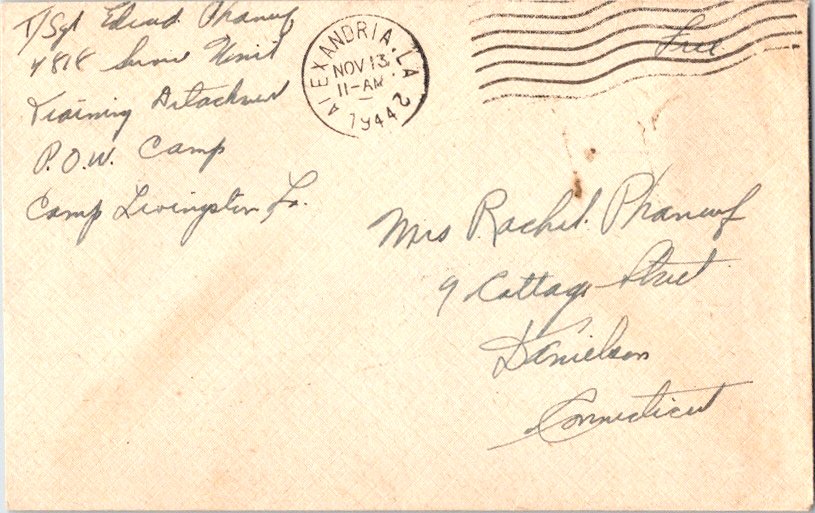 T/Sgt Edward Phaneuf
4818 Service Unit
Training Detachment
P.O.W. Camp
Camp Livingston, La.
ALEXANDRIA, LA
NOV 13
11-AM
1944
2
Free
Mrs Rachel Phaneuf
9 Cottage Street
Danielson
Connecticut